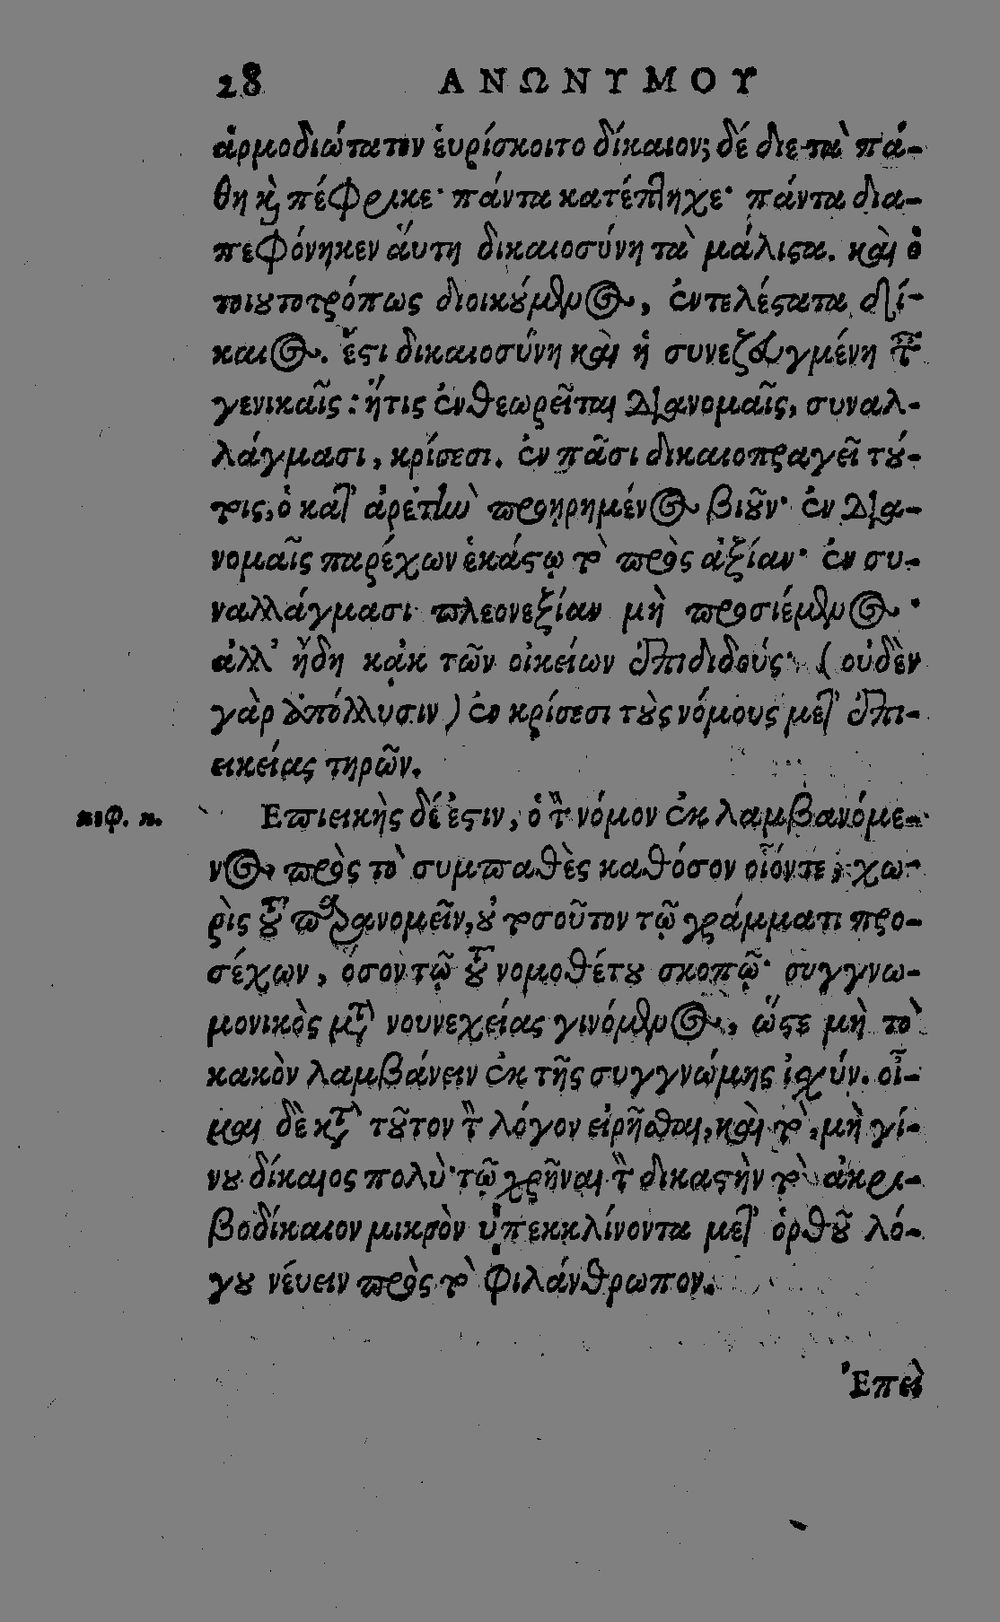 28 ΑΝΩΝΥΜΟΥ
ἁρμοδιώτατον ἑυρίσκοιτο δίκαιον; δέδιε τὰ πά-
θη κỳ πέφρικε· πάντα κατέπληχε· πάντα δια-
πεφόνηκεν ἅυτη δικαιοσύνη τὰ μάλιςα. καὶ ὁ
τοιȣτοτρόπως διοικȣ́μενος, ἐντελέςατα δί-
καιος. ἔςι δικαιοσύνη καὶ ἡ συνεζευγμένη
γενικαῖς: ἥτις ἐνθεωρεῖται διανομαῖς, συναλ-
λάγμασι, κρίσεσι. ἐν πᾶσι δικαιοπραγεῖ τȣ́-
τοις, ὁ κατ' ἀρετὴν προηρημένος βιοῦν· ἐν δια-
νομαῖς παρέχων ἑκάςῳ τὸ πρὸς ἀξίαν· ἐν συ-
ναλλάγμασι πλεονεξίαν μὴ προσιέμενος·
ἀλλ' ἤδη κἀκ τῶν οἰκείων ἐπιδιδούς· (οὐδὲν
γὰρ ἀπόλλυσιν) ἐν κρίσεσι τȣ̀ς νόμους μετ' ἐπι-
εικείας τηρῶν.
κεφ. κ.
Επιεικὴς δέ ἐςιν, ὁ τὸν νόμον ἐκλαμβανόμε-
νος πρὸς τὸ συμπαθὲς καθόσον οἷόντε, χω-
ρὶς τȣ͂ παρανομεῖν, ȣ̓ τοσοῦτον τῷ γράμματι προ-
σέχων, ὅσον τῷ τȣ͂ νομοθέτȣ σκοπῷ· συγγνω-
μονικὸς μετὰ νουνεχείας γινόμενος, ὥςε μὴ τὸ
κακὸν λαμβάνειν ἐκ τῆς συγγνώμης ἰσχύν. οἶ-
μαι δὲ κατὰ τȣ͂τον τὸν λόγον εἰρῆσθαι, καὶ τὸ, μὴ γί-
νȣ δίκαιος πολύ· τῷ χρῆναι τὸν δικαςὴν τὸ ἀκρι-
βοδίκαιον μικρὸν ὑπεκκλίνοντα μετ' ὀρθȣ͂ λό-
γȣ νέυειν πρὸς τὸ φιλάνθρωπον.
Ἐπεὶ